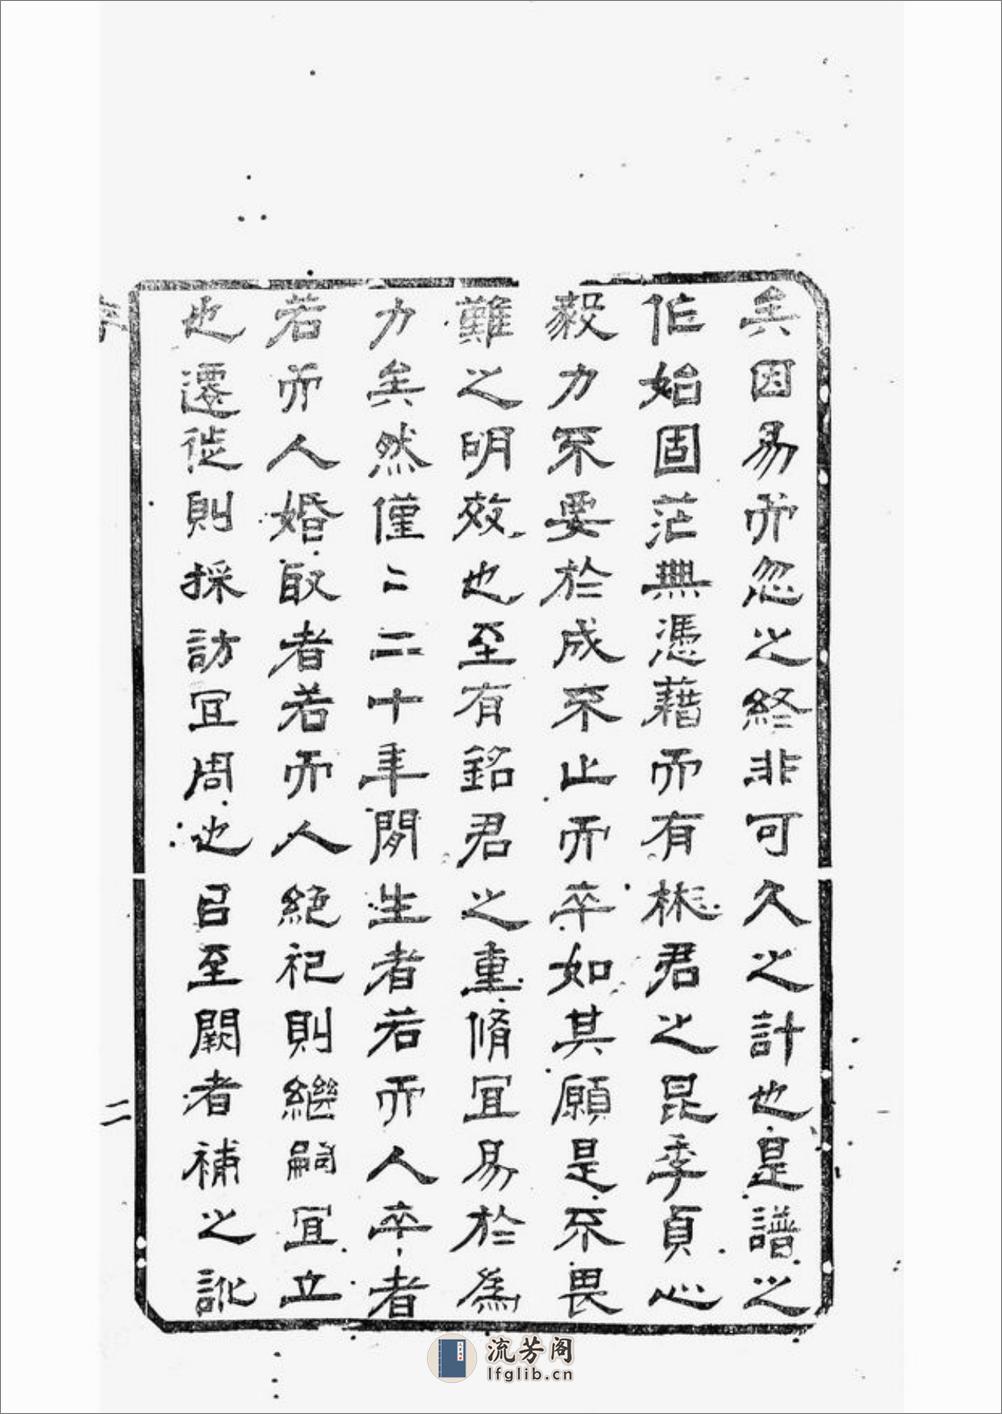 矣因易而忽之終非可久之計也是譜之
作始固茫無憑藉而有彬君之昆季貞心
毅力不要於成不止而卒如其願是不畏
難之明效也至有銘君之重脩宜易於為
力矣然僅〻二十年閒生者若而人卒者
若而人婚取者若而人絕祀則繼嗣宜立
也遷徙則採訪宜周也㠯至闕者補之訛
序
二
流芳阁
lfglib.cn